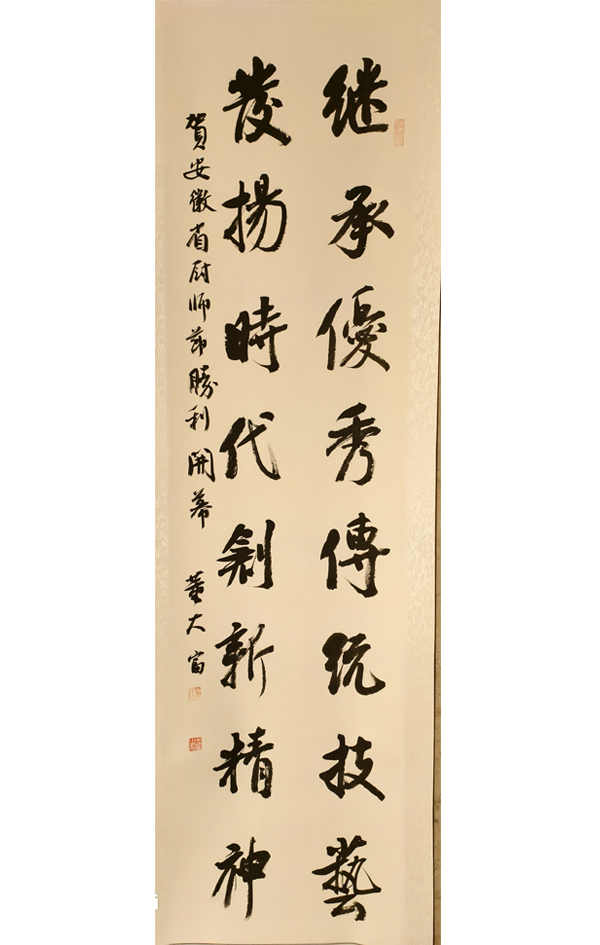 继承優秀傳统技藝
發揚時代創新精神
賀安徽省厨师节勝利開幕
董大富